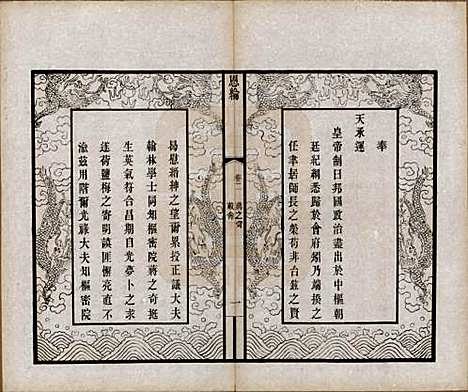 奉
天承運
皇帝制曰邦國政治盡出於中樞朝
廷紀綱悉歸於會府須乃端揆之
任聿居師長之榮苟非台鼎之賢
恩綸
卷一 蔣之奇
一
曷慰縉紳之望爾累授正議大夫
翰林學士同知樞密院蔣之奇挺
生英氣符合昌期自光夢卜之求
遂荷鹽梅之寄明謨匪懈亮直不
渝茲用階爾光祿大夫知樞密院